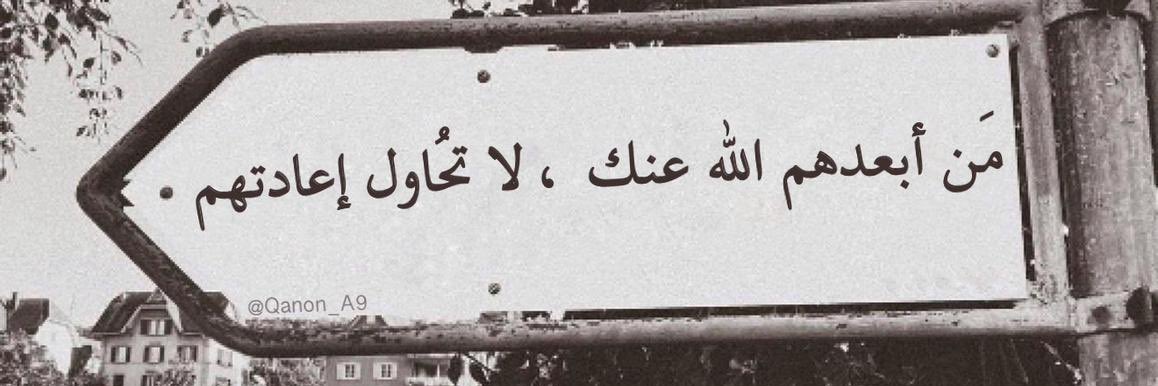 مَن أبعدهم الله عنك ، لا تحُاول إعادتهم
@Qanon_A9